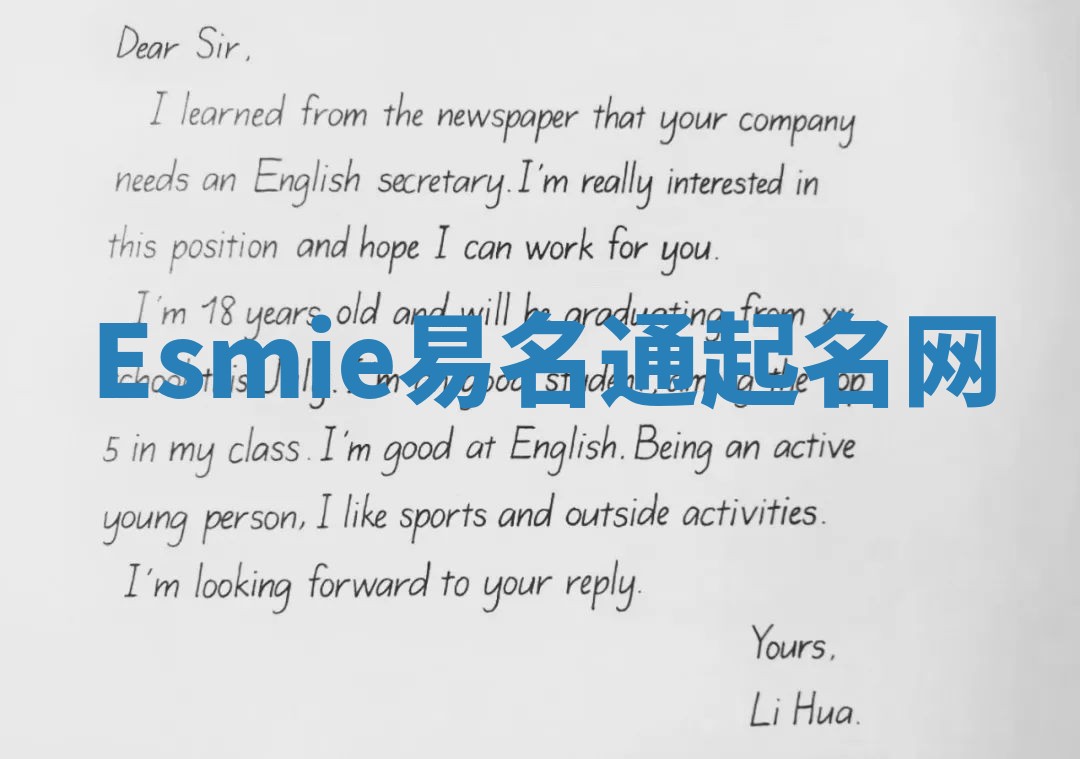 Dear Sir,
I learned from the newspaper that your company
needs an English secretary. I'm really interested in
this position and hope I can work for you.
I'm 18 years old and will be graduating from xx
Esmie易名通起名网
school this July. I'm a good student, among the top
5 in my class. I'm good at English. Being an active
young person, I like sports and outside activities.
I'm looking forward to your reply.
Yours,
Li Hua.